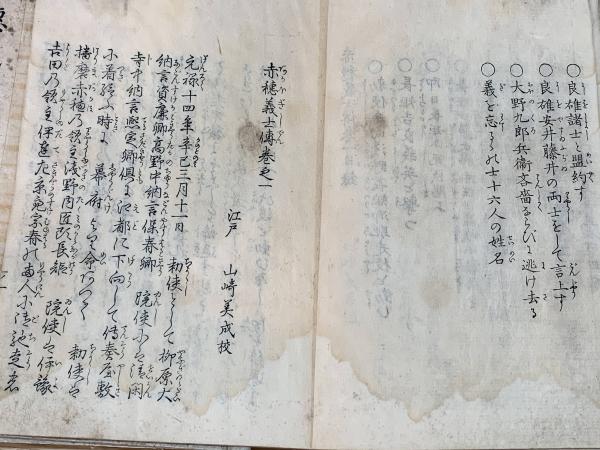 ○良雄諸士と盟約す
○良雄安井藤井の両士をして言上す
○大野九郎兵衛吝嗇ならびに逃け去る
○義を忘るゝの士十六人の姓名
赤穂義士傳巻之一
江戸 山崎美成校
元禄十四年辛巳三月十一日 勅使として柳原大
納言資廉卿高野中納言保春卿 院使にハ清閑
寺中納言熈定卿倶に江都に下向して傳奏屋敷
に着給ふ時に 幕府より命ありて 勅使ハ
播磨赤穂乃領主浅野内匠頭長矩 院使ハ伊豫
吉田乃領主伊達左京亮宗春の両人に御馳走